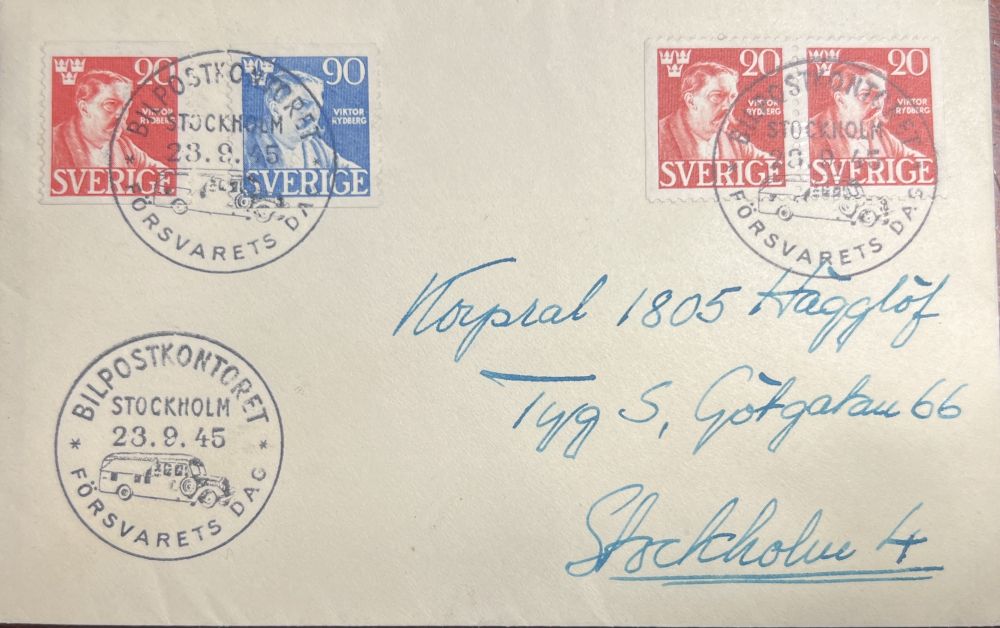 20
VIKTOR
RYDBERG
SVERIGE
90
VIKTOR
RYDBERG
SVERIGE
BILPOSTKONTORET
STOCKHOLM
23.9.45
* FÖRSVARETS DAG *
20
VIKTOR
RYDBERG
SVERIGE
20
VIKTOR
RYDBERG
SVERIGE
BILPOSTKONTORET
STOCKHOLM
23.9.45
* FÖRSVARETS DAG *
Korpral 1805 Hägglöf
Tyg S, Götgatan 66
Stockholm 4
BILPOSTKONTORET
STOCKHOLM
23.9.45
* FÖRSVARETS DAG *